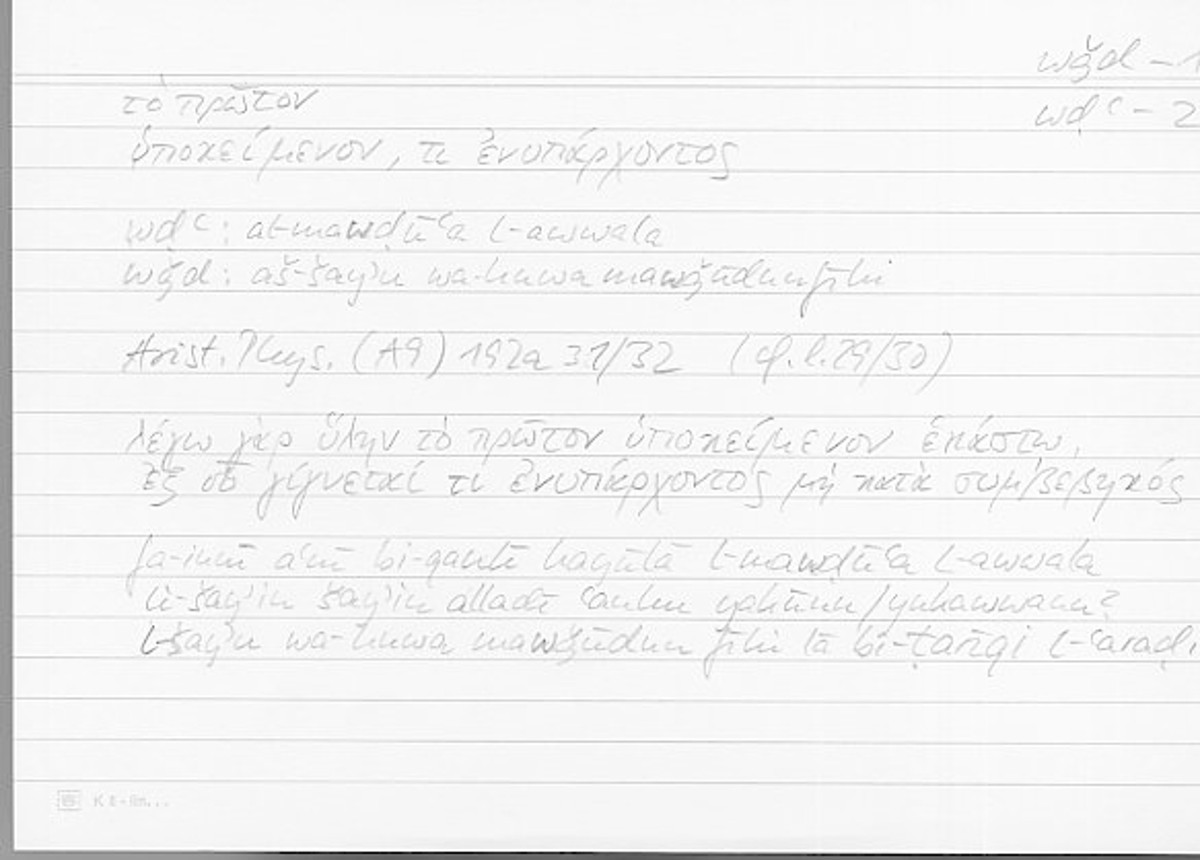 wǧd – 1
wḍʿ – 2
τὸ πρῶτον
ὑποκείμενον, τι ἐνυπάρχοντος
wḍʿ: al-mawḍūʿa l-awwala
wǧd: aš-šayʾu wa-huwa mawǧūdun fīhi
Arist. Phys. (A9) 192a 31/32 (cf. l. 29/30)
λέγω γὰρ ὕλην τὸ πρῶτον ὑποκείμενον ἑκάστῳ,
ἐξ οὗ γίγνεταί τι ἐνυπάρχοντος μὴ κατὰ συμβεβηκός
fa-innī aʿnī bi-qawlī hayūlā l-mawḍūʿa l-awwala
li-šayʾin šayʾin allaḏī ʿanhu yakūnu/yukawwanu?
l-šayʾu wa-huwa mawǧūdun fīhi lā bi-ṭarīqi l-ʿaraḍi